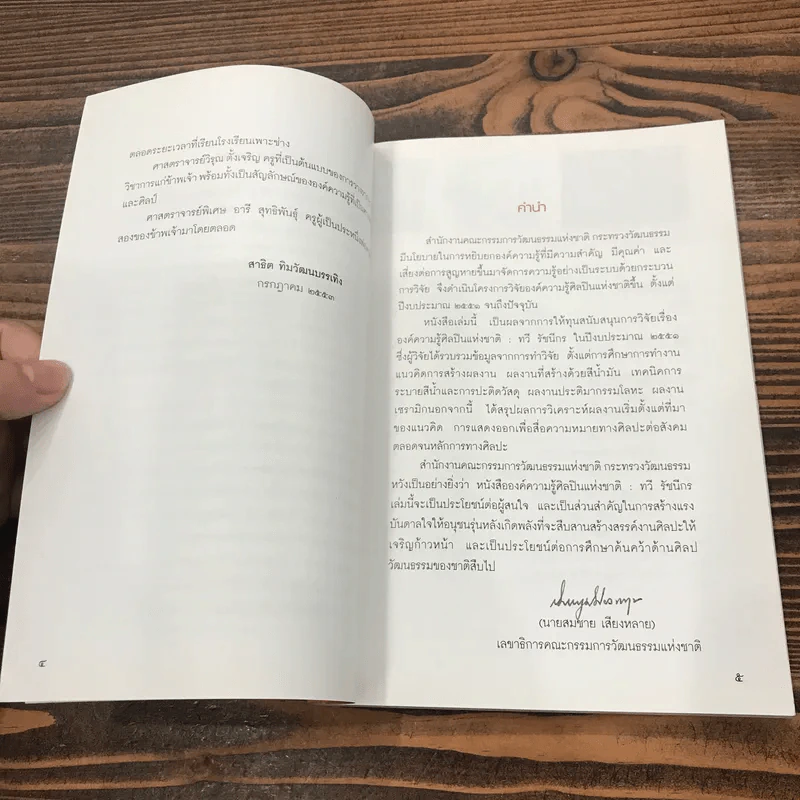 ตลอดระยะเวลาที่เรียนโรงเรียนเพาะช่าง
ศาสตราจารย์วิรุณ ตั้งเจริญ ครูที่เป็นต้นแบบของการวาง
วิชาการแก่ข้าพเจ้า พร้อมทั้งเป็นสัญลักษณ์ขององค์ความรู้ที่
และศิลป์
ศาสตราจารย์พิเศษ อารี สุทธิพันธุ์ ครูผู้เป็นประหนึ่ง
สองของข้าพเจ้ามาโดยตลอด
สาธิต ทิมวัฒนบรรเทิง
กรกฎาคม ๒๕๕๓
๔
คำนำ
สำนักงานคณะกรรมการวัฒนธรรมแห่งชาติ กระทรวงวัฒนธรรม
มีนโยบายในการหยิบยกองค์ความรู้ที่มีความสำคัญ มีคุณค่า และ
เสี่ยงต่อการสูญหายขึ้นมาจัดการความรู้อย่างเป็นระบบด้วยกระบวน
การวิจัย จึงดำเนินโครงการวิจัยองค์ความรู้ศิลปินแห่งชาติขึ้น ตั้งแต่
ปีงบประมาณ ๒๕๕๑ จนถึงปัจจุบัน
หนังสือเล่มนี้ เป็นผลจากการให้ทุนสนับสนุนการวิจัยเรื่อง
องค์ความรู้ศิลปินแห่งชาติ : ทวี รัชนีกร ในปีงบประมาณ ๒๕๕๑
ซึ่งผู้วิจัยได้รวบรวมข้อมูลจากการทำวิจัย ตั้งแต่การศึกษาการทำงาน
แนวคิดการสร้างผลงาน ผลงานที่สร้างด้วยสีน้ำมัน เทคนิคการ
ระบายสีน้ำและการปะติดวัสดุ ผลงานประติมากรรมโลหะ ผลงาน
เซรามิกนอกจากนี้ ได้สรุปผลการวิเคราะห์ผลงานเริ่มตั้งแต่ที่มา
ของแนวคิด การแสดงออกเพื่อสื่อความหมายทางศิลปะต่อสังคม
ตลอดจนหลักการทางศิลปะ
สำนักงานคณะกรรมการวัฒนธรรมแห่งชาติ กระทรวงวัฒนธรรม
หวังเป็นอย่างยิ่งว่า หนังสือองค์ความรู้ศิลปินแห่งชาติ : ทวี รัชนีกร
เล่มนี้จะเป็นประโยชน์ต่อผู้สนใจ และเป็นส่วนสำคัญในการสร้างแรง
บันดาลใจให้อนุชนรุ่นหลังเกิดพลังที่จะสืบสานสร้างสรรค์งานศิลปะให้
เจริญก้าวหน้า และเป็นประโยชน์ต่อการศึกษาค้นคว้าด้านศิลป
วัฒนธรรมของชาติสืบไป
(นายสมชาย เสียงหลาย)
เลขาธิการคณะกรรมการวัฒนธรรมแห่งชาติ
๕